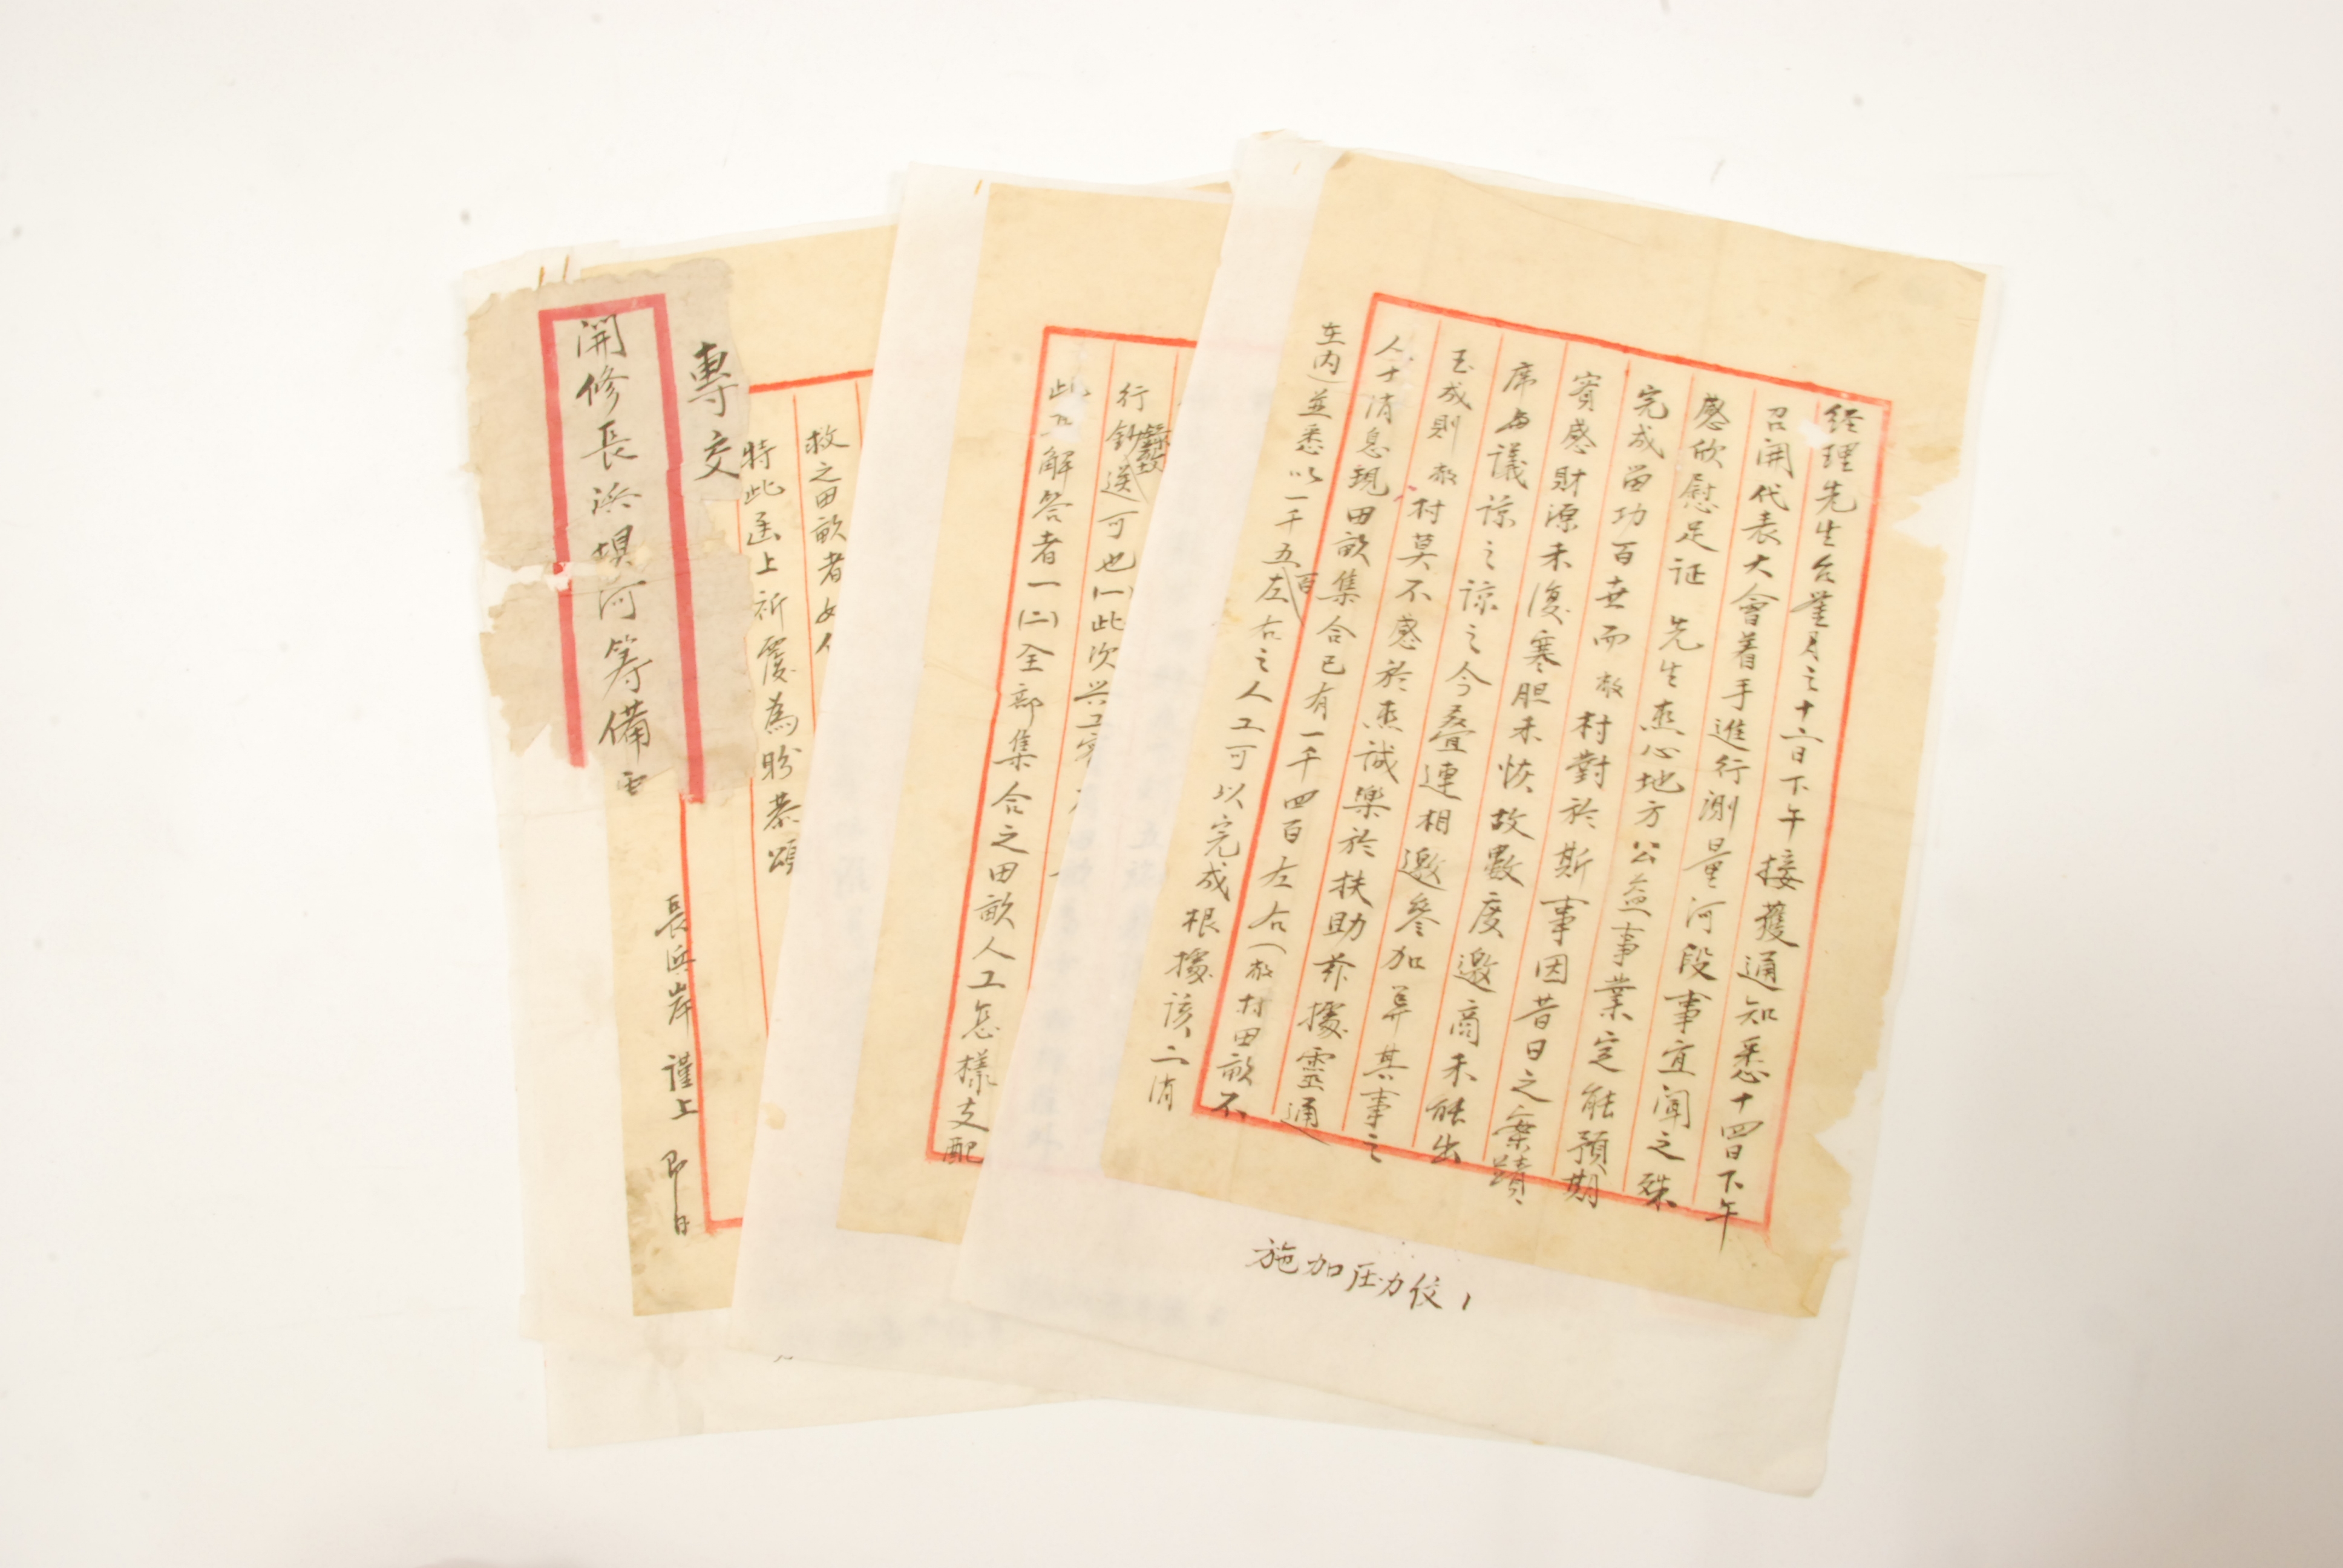 經理先生台鑒月之十二日下午接獲通知悉十四日下午
召開代表大會着手進行測量河段事宜聞之殊
感欣慰足証 先生熱心地方公益事業定能預期
完成留功百世而敝村對於斯事因昔日之案蹟
實感財源未復寒胆未恢故數度邀商未能出
席與議諒之諒之今叠連相邀參加弄其事之
玉成則敝村莫不感於熱誠樂於扶助茲據靈通
人士消息現田畝集合已有一千四百左右(敝村田畝不
在内)並悉以一千五百左右之人工可以完成根據該二消
施加压力佼
行鈔錄敝送可也(一)此次兴工
此 解答者一(二)全部集合之田畝人工怎樣支配
救之田畝者
特此函上祈覆為盼恭頌
長浜岸 謹上 即日
專交
開修長浜壩河籌備